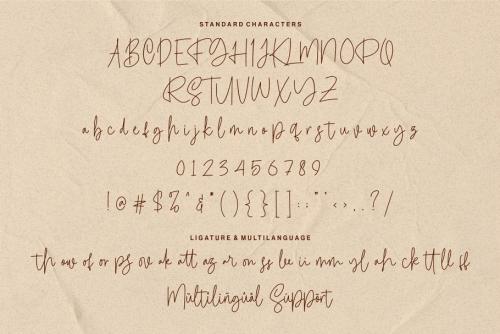 STANDARD CHARACTERS
ABCDEFGHIJKLMNOPQ
RSTUVWXYZ
abcdefghijklmnopqrstuvwxyz
0123456789
!@#$%^&*(){}[]:;"'<>,.?/
LIGATURE & MULTILANGUAGE
th ow of or ps ov ak att az ar on ss be ii mm yl ah ck tt ll ff
Mùltilingùál Sùppört